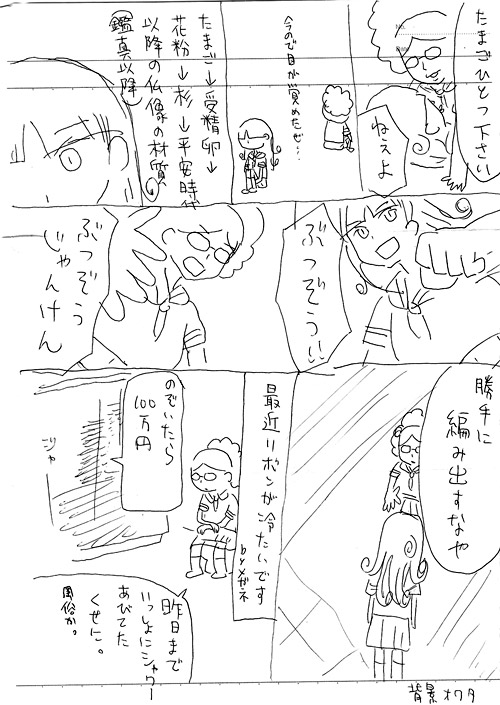 たまごひとつ下さい
ねぇよ
今ので目が覚めたぜ…
たまご→受精卵→
花粉→杉→平安時代
以降の仏像の材質
鑑真以降
ぶつぞう!!
ぶつぞう
じゃんけん
勝手に
編み出すなや
最近リボンが冷たいです
byメガネ
のぞいたら
100万円
ジャー
昨日まで
いっしょにシャワー
あびてた
くせに。
風俗か。
背景オワタ